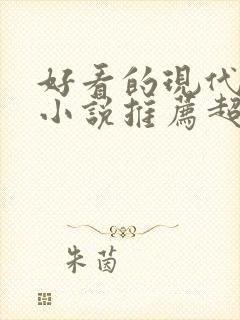 好看的现代
小说推薦超
朱茵